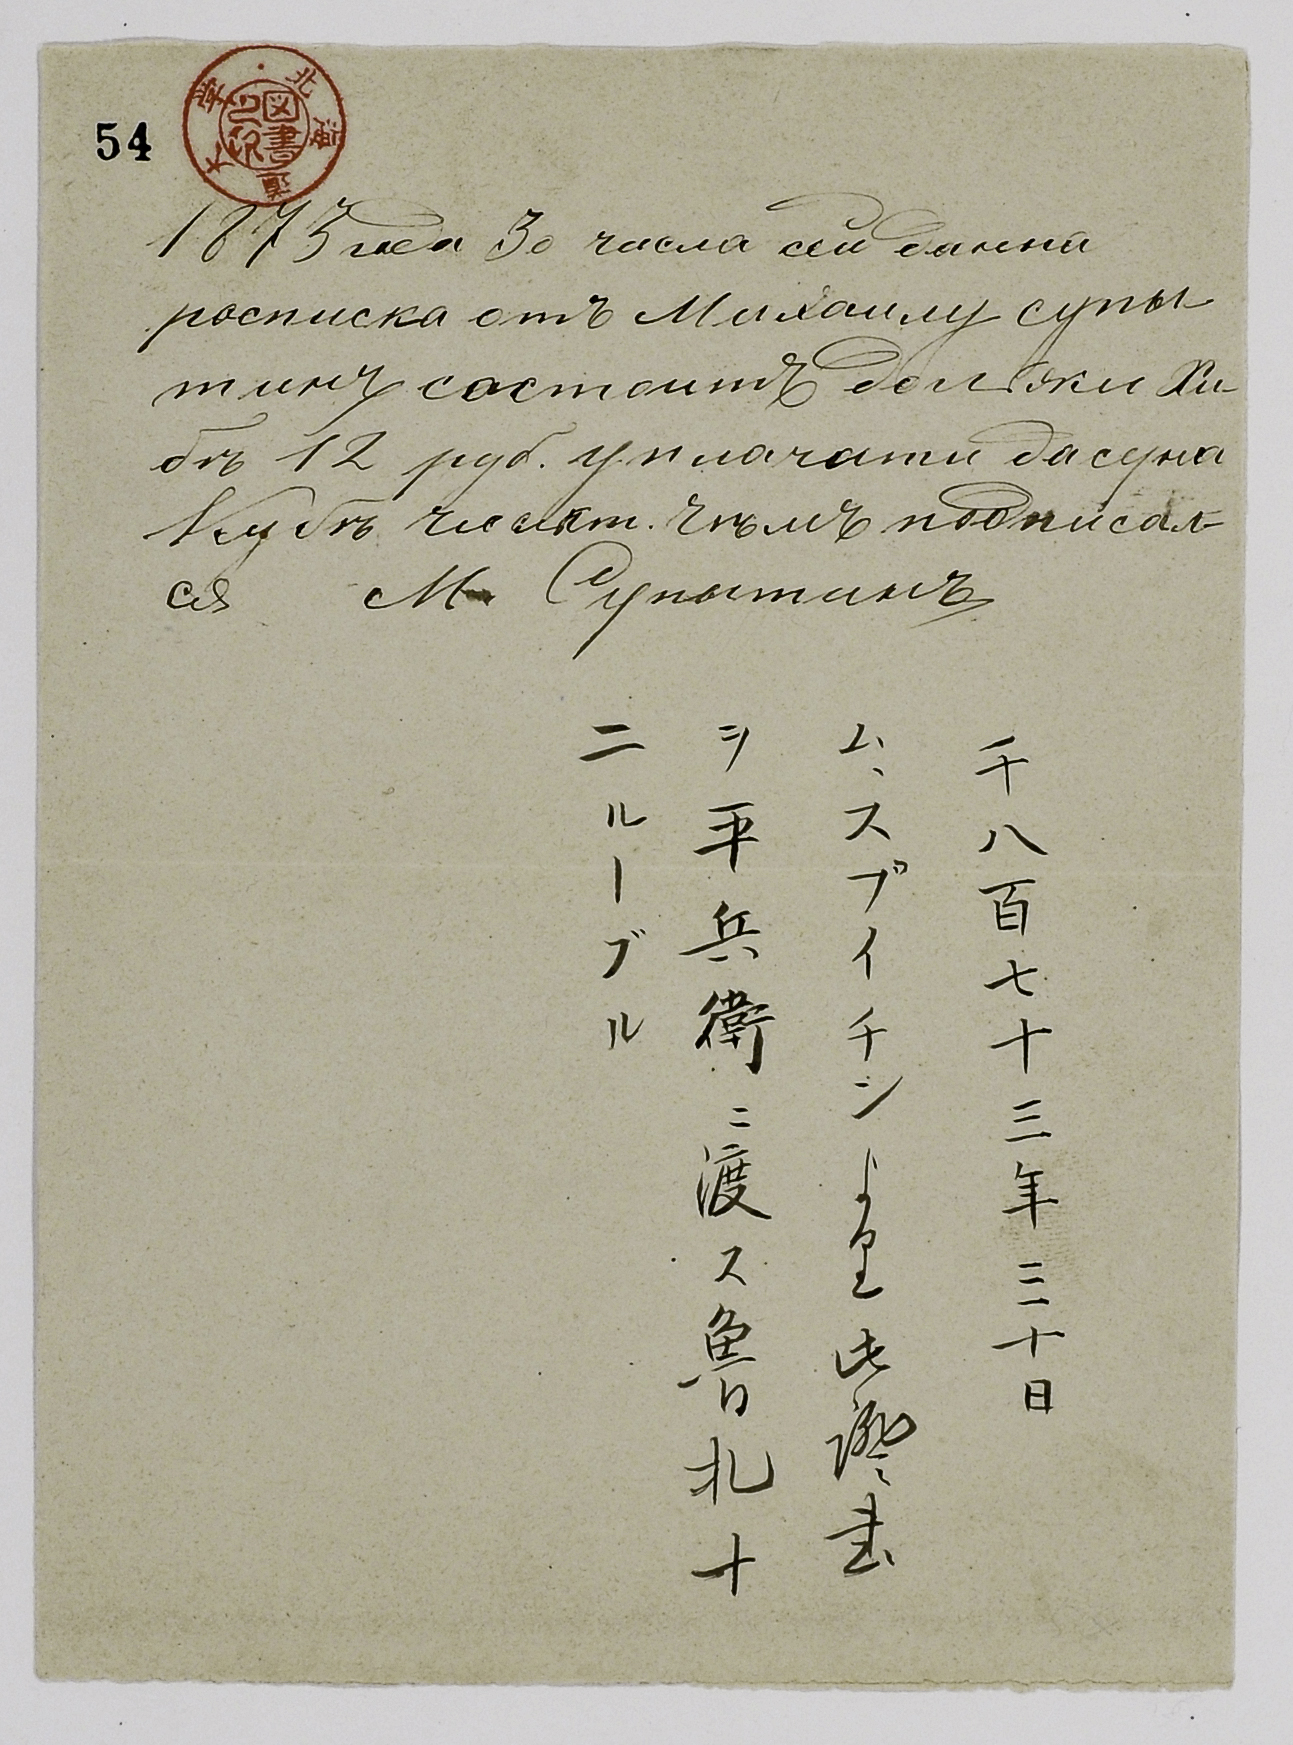 54
北海道大学
図書之印
1873 года 30 числа сей данна
росписка отъ Михаилу супы
тинъ состоитъ должки Хи-
бѣ 12 руб. уплачати
чѣмъ подписал-
ся М. Супытинъ
千八百七十三年三十日
ム、スプイチンより此證書
ヲ平兵衛ニ渡ス魯札十
二ルーブル